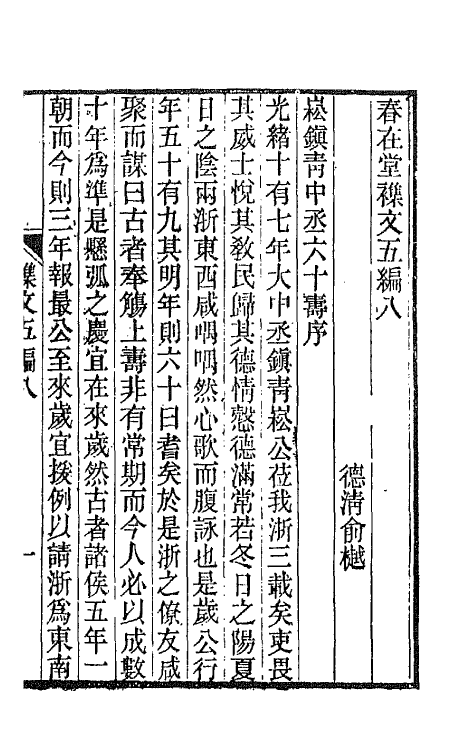 春在堂襍文五編八
德清俞樾
崧鎮靑中丞六十壽序
光緒十有七年大中丞鎮靑崧公莅我浙三載矣吏畏
其威士悅其敎民歸其德情慤德滿常若冬日之陽夏
日之陰兩浙東西咸喁喁然心歌而腹詠也是歲公行
年五十有九其明年則六十曰耆矣於是浙之僚友咸
聚而謀曰古者奉觴上壽非有常期而今人必以成數
十年爲準是懸弧之慶宜在來歲然古者諸侯五年一
朝而今則三年報最公至來歲宜援例以請浙爲東南
襍文五編八
一